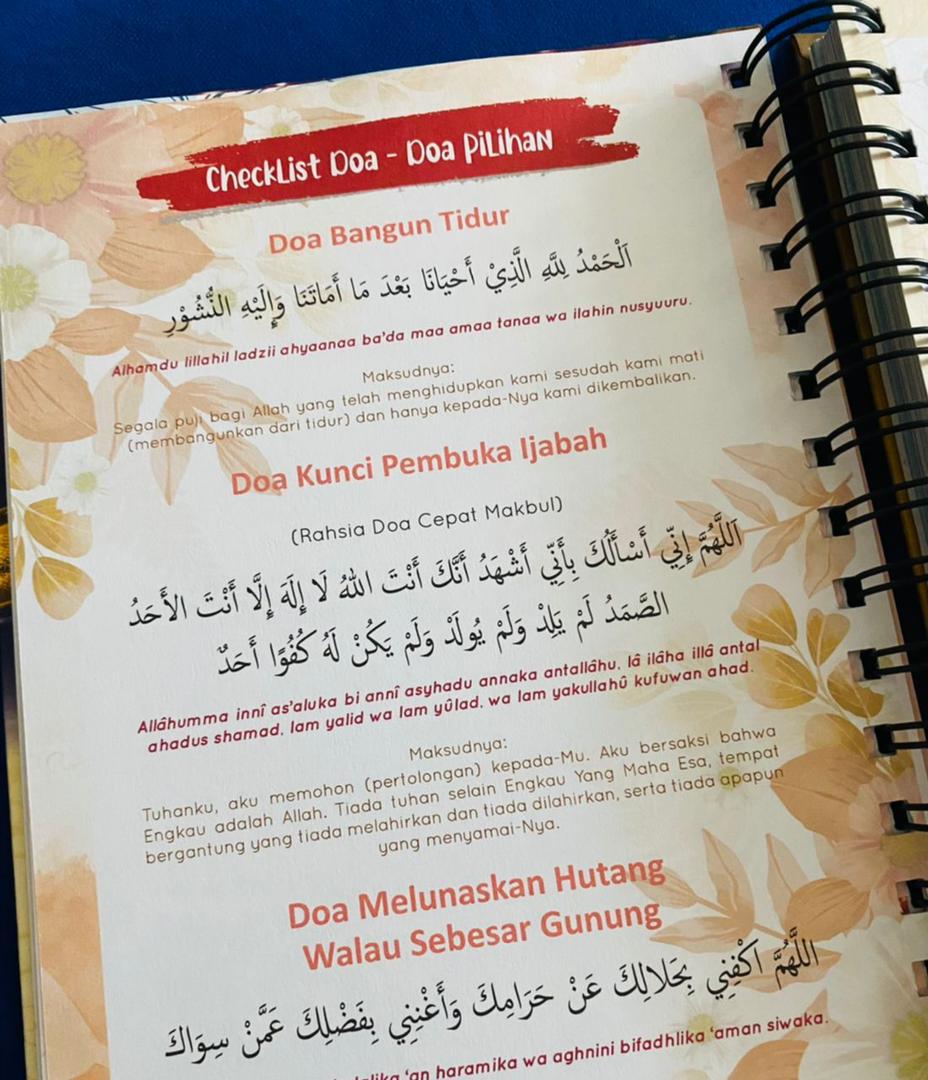 Checklist Doa - Doa Pilihan
Doa Bangun Tidur
اَلْحَمْدُ لِلّٰهِ الَّذِيْ أَحْيَانَا بَعْدَ مَا أَمَاتَنَا وَإِلَيْهِ النُّشُوْرِ
Alhamdu lillahil ladzii ahyaanaa ba'da maa amaa tanaa wa ilahin nusyuuru.
Maksudnya:
Segala puji bagi Allah yang telah menghidupkan kami sesudah kami mati
(membangunkan dari tidur) dan hanya kepada-Nya kami dikembalikan.
Doa Kunci Pembuka Ijabah
(Rahsia Doa Cepat Makbul)
اَللّٰهُمَّ إِنِّي أَسْأَلُكَ بِأَنِّي أَشْهَدُ أَنَّكَ أَنْتَ اللهُ لَا إِلَهَ إِلَّا أَنْتَ الأَحَدُ
الصَّمَدُ لَمْ يَلِدْ وَلَمْ يُولَدْ وَلَمْ يَكُنْ لَهُ كُفُوًا أَحَدٌ
Allâhumma innî as'aluka bi annî asyhadu annaka antallâhu, lâ ilâha illâ antal
ahadus shamad, lam yalid wa lam yûlad, wa lam yakullahû kufuwan ahad.
Maksudnya:
Tuhanku, aku memohon (pertolongan) kepada-Mu. Aku bersaksi bahwa
Engkau adalah Allah. Tiada tuhan selain Engkau Yang Maha Esa, tempat
bergantung yang tiada melahirkan dan tiada dilahirkan, serta tiada apapun
yang menyamai-Nya.
Doa Melunaskan Hutang
Walau Sebesar Gunung
اللَّهُمَّ اكْفِنِي بِحَلَالِكَ عَنْ حَرَامِكَ وَأَغْنِنِي بِفَضْلِكَ عَمَّنْ سِوَاكَ
'an haramika wa aghnini bifadhlika 'aman siwaka.